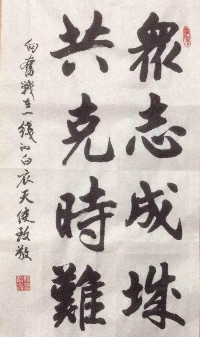 眾志成城
共克時難
向奮戰在一线的白衣天使致敬